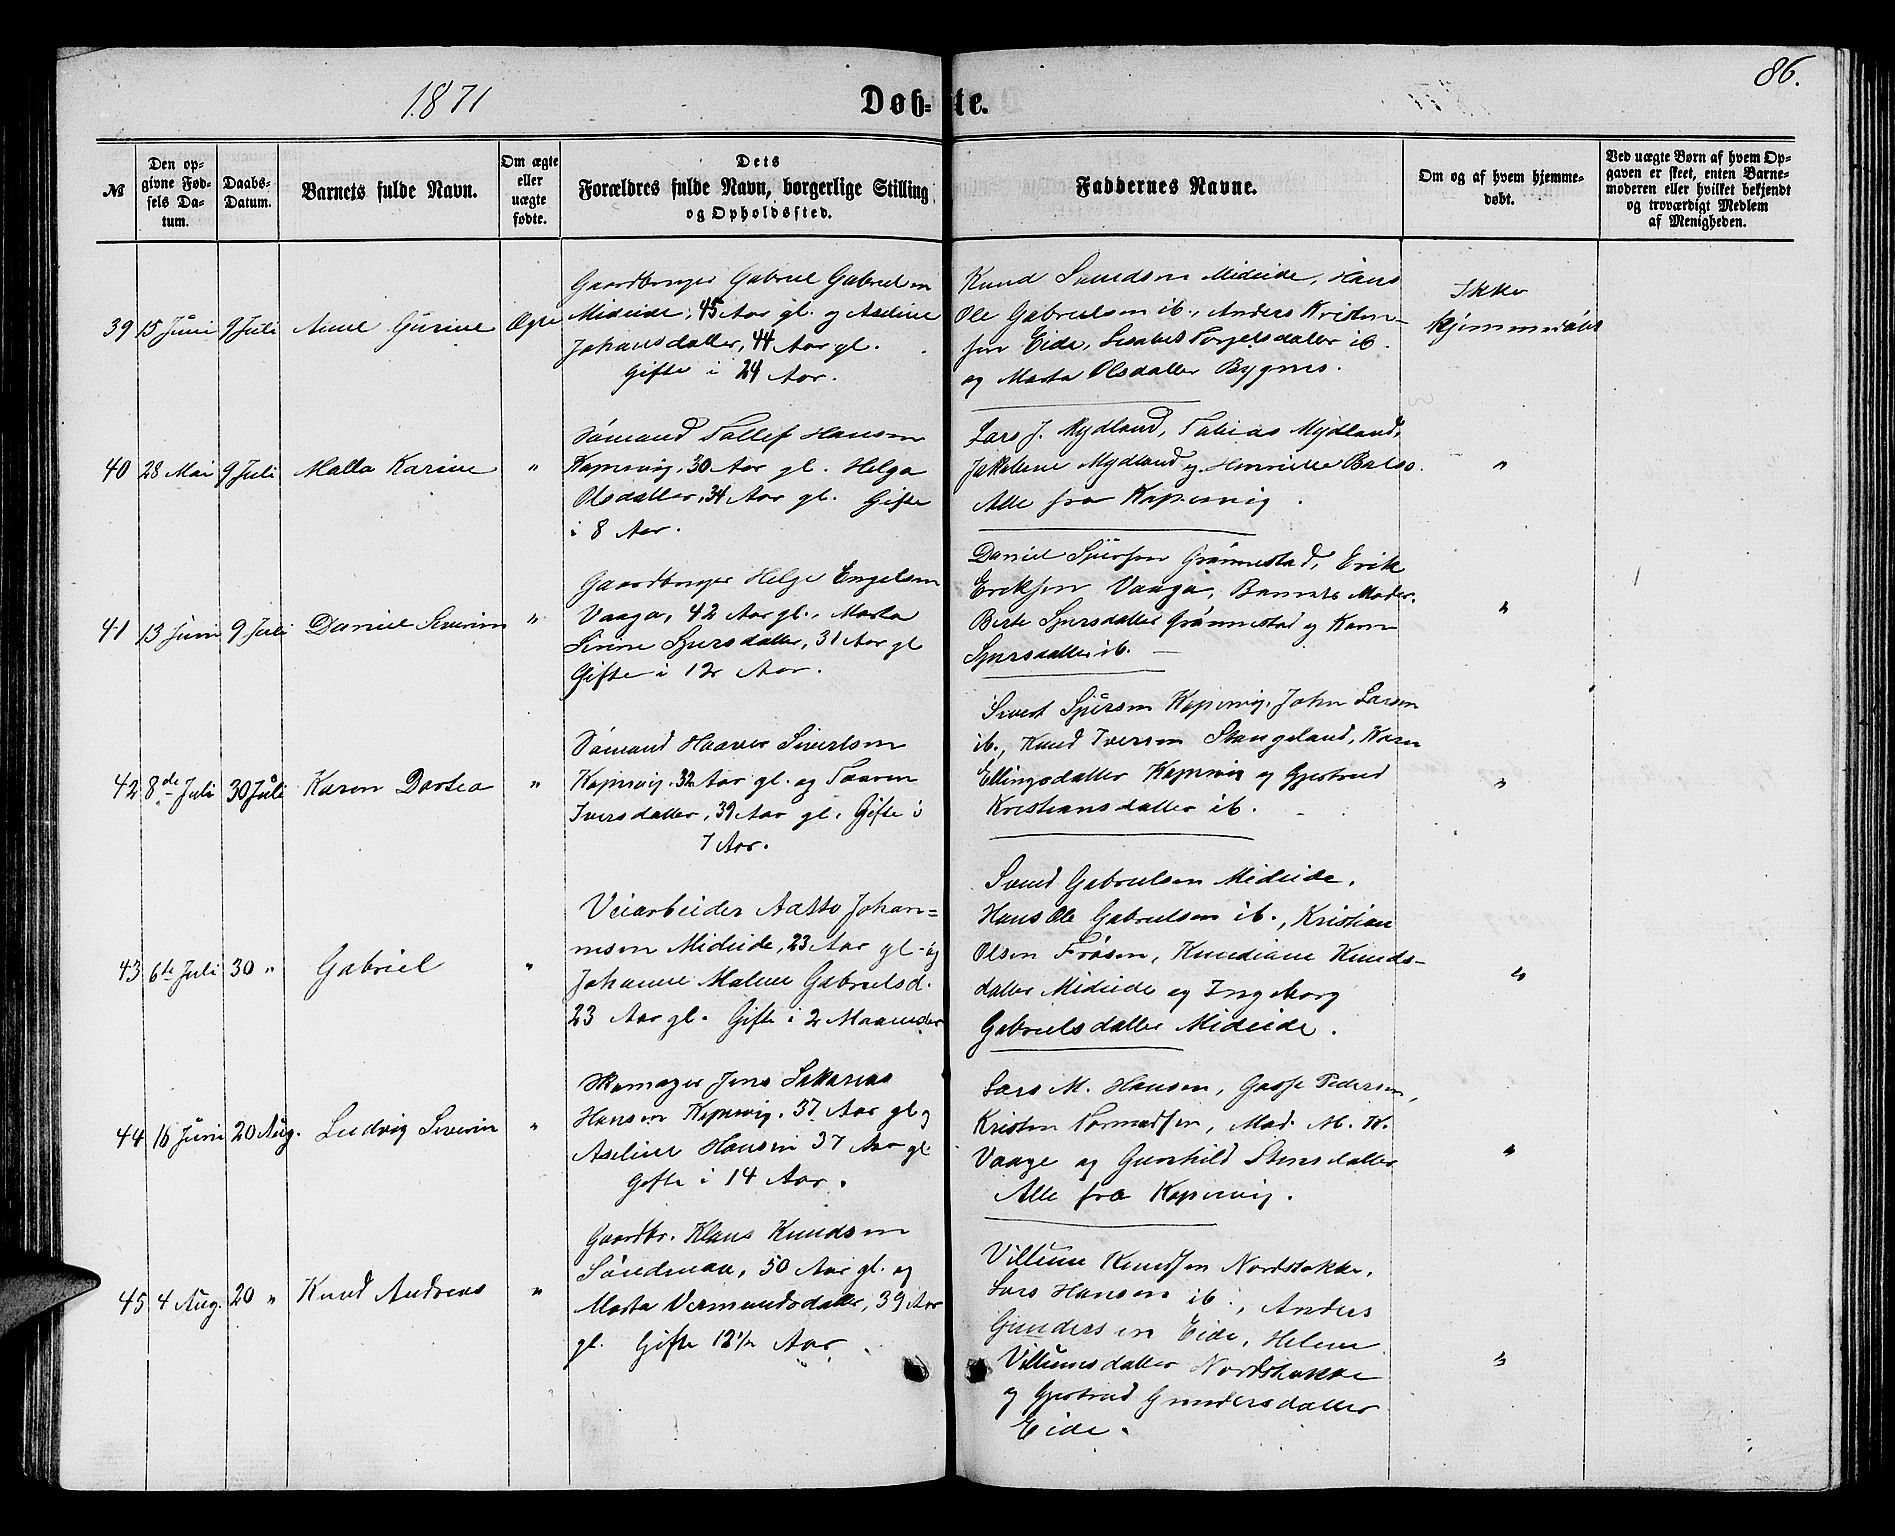 1871
Døb-te.
86.
№
Den op-
givne Fød-
sels Da-
tum.
Daabs-
Datum.
Barnets fulde Navn.
Om ægte
eller
uægte
fødte.
Dets
Forældres fulde Navn, borgerlige Stilling
og Opholdssted.
Faddernes Navne.
Om og af hvem hjemme-
døbt.
Ved uægte Børn af hvem Op-
gaven er skeet, enten Barne-
moderen eller hvilket bekjendt
og troværdigt Medlem
af Menigheden.
39 15 Juni 9 Juli Anne Gurine Ægte
Gaardbruger Gabriel Gabrielsen
Mideide, 45 Aar gl. og Aseline
Johansdatter, 44 Aar gl.
Gifte i 24 Aar.
Knud Svendsen Mideide, Hans
Ole Gabrielsen ib., Anders Kristen-
sen Eide, Lisabet Torjelsdatter ib.
og Marta Olsdatter Bygnes.
Ikke
hjemmedøbt
40 28 Mai 9 Juli Malla Karine "
Sømand Tollef Hansen
Kopervig, 30 Aar gl. Helga
Olsdatter, 34 Aar gl. Gifte
i 8 Aar.
Lars J. Mydland, Tobias Mydland,
Jakobine Mydland og Henriette
Alle fra Kopervig.
"
41 13 Juni 9 Juli Daniel Severin "
Gaardbruger Helge Engelsen
Vaaga, 42 Aar gl., Marta
Sirine Sjursdatter, 31 Aar gl
Gifte i 12 Aar.
Daniel Sjursen Grønnestad, Erik
Eriksen Vaaga, Barnets Moder.
Berte Sjursdatter Grønnestad og Karen
Sjursdatter ib.
"
42 8de Juli 30 Juli Karen Dortea "
Sømand Haaver Sivertsen
Kopervig, 32 Aar gl. og Taaren
Iversdatter, 39 Aar gl. Gifte i
7 Aar.
Sivert Sjursen Kopervig, John Larsen
ib., Knud Iversen Stangeland, Karen
Ellingsdatter Kopervig og Gjertrud
Kristiansdatter ib.
"
43 6te Juli 30 " Gabriel "
Veiarbeider Johan-
nesen Mideide, 23 Aar gl. og
Johanne Malene Gabrielsd.
23 Aar gl. Gifte i 2 Maaneder
Svend Gabrielsen Mideide,
Hans Ole Gabrielsen ib., Kristian
Olsen Frøsen, Knudiane Knuds-
datter Mideide og Ingeborg
Gabrielsdatter Mideide.
"
44 16 Juni 20 Aug. Ludvig Severin "
Skomager Jens Sakarias
Hansen Kopervig, 37 Aar gl og
Aseline Hansen 37 Aar gl
Gifte i 14 Aar.
Lars M. Hansen, Pedersen,
Kristen Tormodsen, Mad. M. K.
Vaage og Gunhild Stensdatter
Alle fra Kopervig.
"
45 4 Aug. 20 " Knud Andreas "
Gaardbr. Klaus Knudsen
Søndenaa, 50 Aar gl. og
Marta Vermundsdatter, 39 Aar
gl. Gifte 12 1/2 Aar
Villum Knudsen Nordstokke,
Lars Hansen ib., Anders
Gundersen Eide, Helene
Villumsdatter Nordstokke
og Gjertrud Gundersdatter
Eide.
"